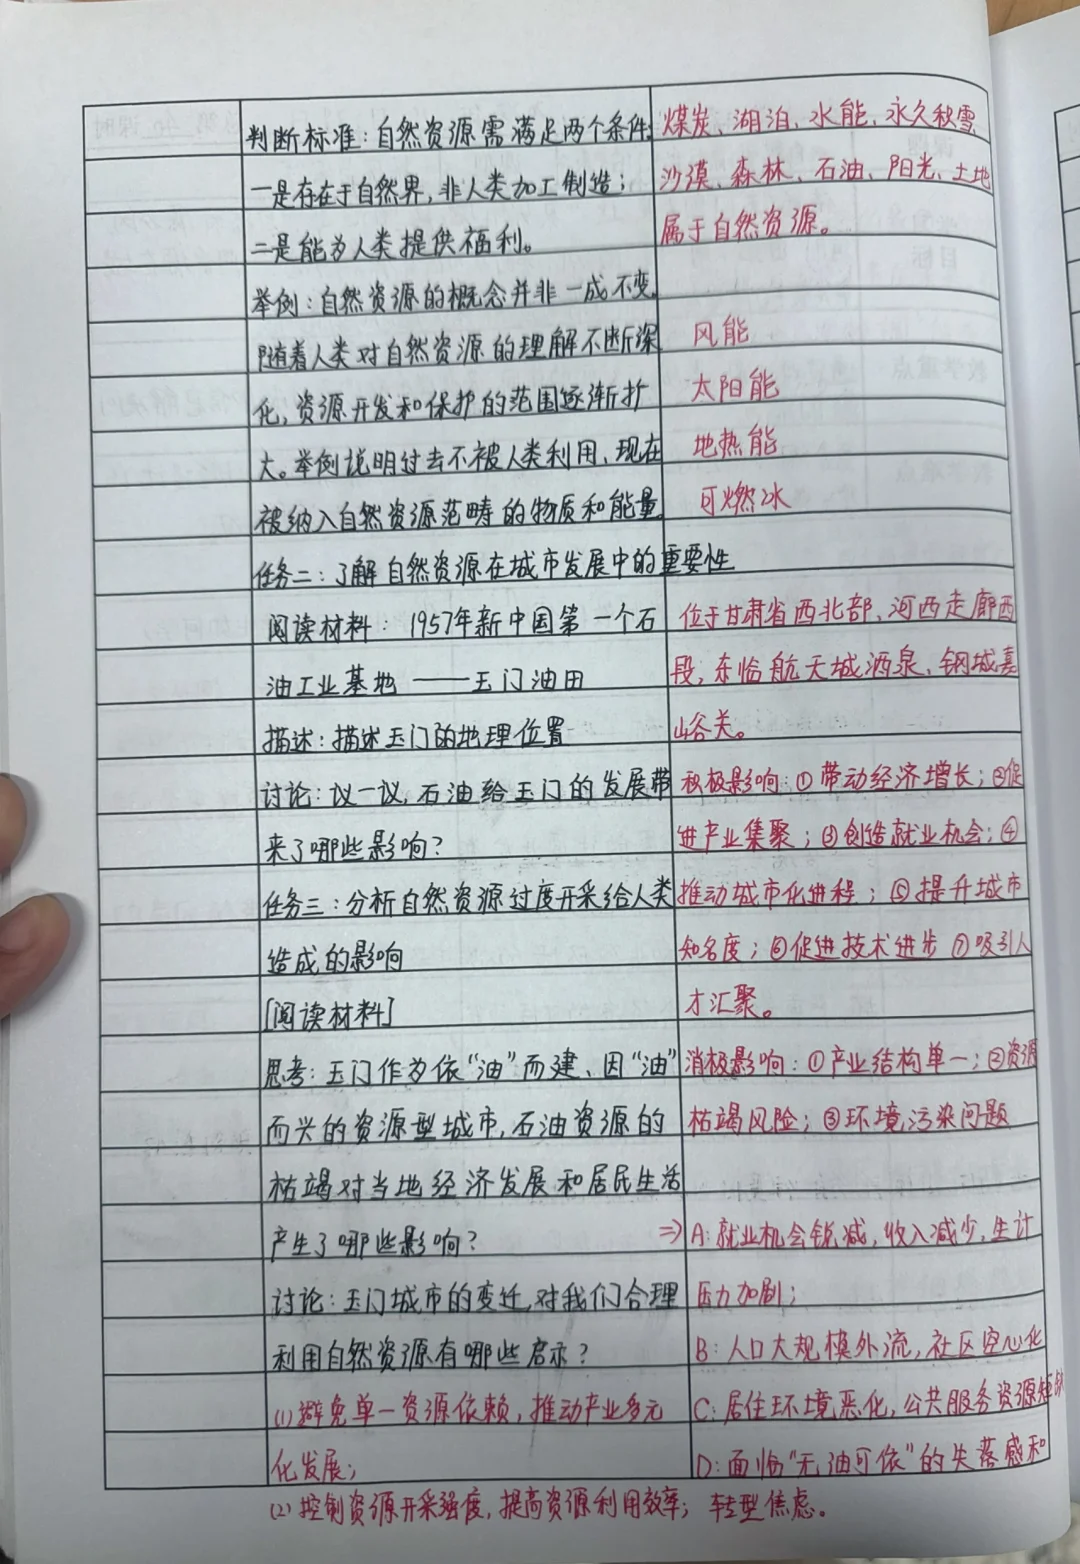 判断标准：自然资源需满足两个条件
一是存在于自然界，非人类加工制造；
二是能为人类提供福利。
举例：自然资源的概念并非一成不变。
随着人类对自然资源的理解不断深
化，资源开发和保护的范围逐渐扩
大。举例说明过去不被人类利用、现在
被纳入自然资源范畴的物质和能量。
任务二：了解自然资源在城市发展中的重要性
阅读材料：1957年新中国第一个石
油工业基地——玉门油田
描述：描述玉门的地理位置
讨论：议一议，石油给玉门的发展带
来了哪些影响？
任务三：分析自然资源过度开采给人类
造成的影响
[阅读材料]
思考：玉门作为依“油”而建、因“油”
而兴的资源型城市，石油资源的
枯竭对当地经济发展和居民生活
产生了哪些影响？
讨论：玉门城市的变迁，对我们合理
利用自然资源有哪些启示？
(1)避免单一资源依赖，推动产业多元
化发展；
(2)控制资源开采强度，提高资源利用效率；
煤炭、湖泊、水能、永久积雪
沙漠、森林、石油、阳光、土地
属于自然资源。
风能
太阳能
地热能
可燃冰
位于甘肃省西北部、河西走廊西
段，东临航天城酒泉、钢城嘉
峪关。
积极影响：①带动经济增长；②促
进产业集聚；③创造就业机会；④
推动城市化进程；⑤提升城市
知名度；⑥促进技术进步⑦吸引人
才汇聚。
消极影响：①产业结构单一；②资源
枯竭风险；③环境污染问题
⇒A：就业机会锐减，收入减少，生计
压力加剧；
B：人口大规模外流，社区空心化
C：居住环境恶化，公共服务资源短缺
D：面临“无油可依”的失落感和
转型焦虑。